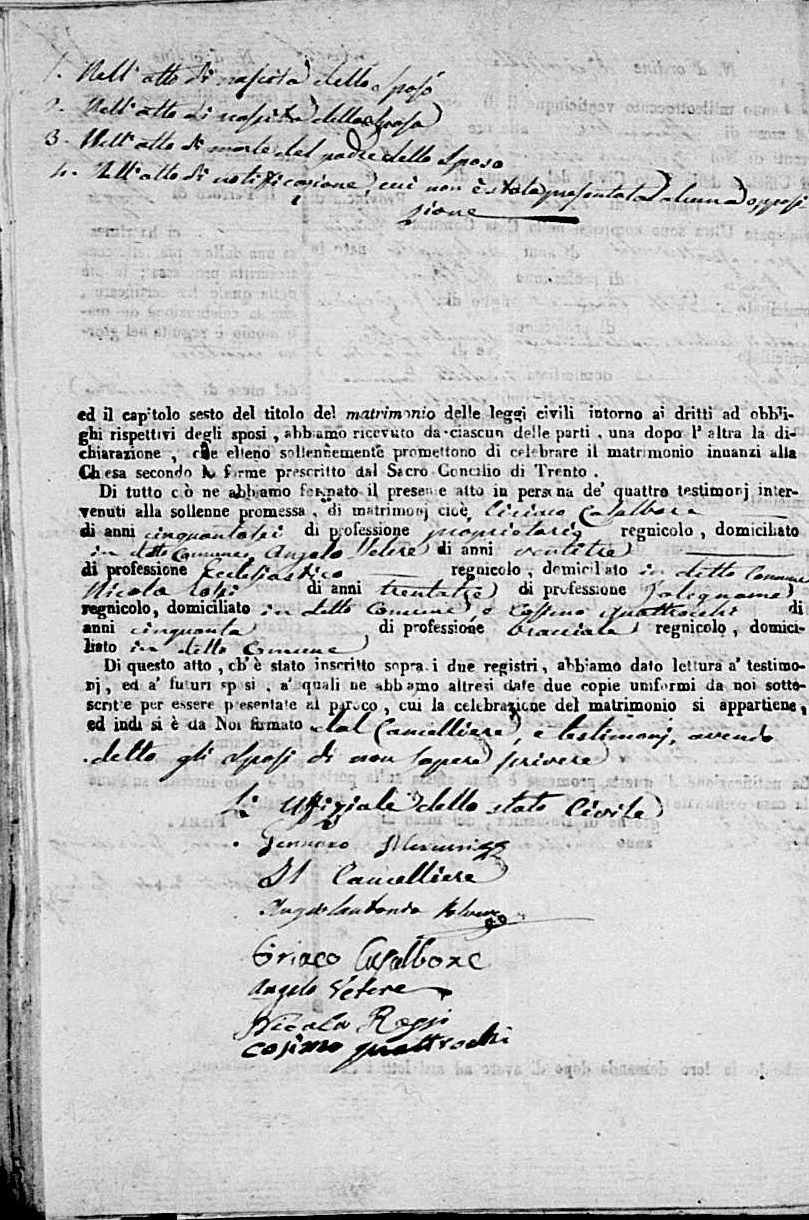 1. Nell'atto di nascita dello sposo
2. Nell'atto di nascita della sposa
3. Nell'atto di morte del padre dello sposo
4. Nell'atto di notificazione, cui non è stata presentata alcuna opposi
zione
ed il capitolo sesto del titolo del matrimonio delle leggi civili intorno ai dritti ad obbli-
ghi rispettivi degli sposi, abbiamo ricevuto da ciascun delle parti, una dopo l'altra la di-
chiarazione, che elleno sollennemente promettono di celebrare il matrimonio innanzi alla
Chesa secondo le forme prescritto dal Sacro Concilio di Trento.
Di tutto ciò ne abbiamo formato il presente atto in persona de' quattro testimonj inter-
venuti alla sollenne promessa, di matrimonj cioè Casalbore
di anni cinquantasei di professione proprietario regnicolo, domiciliato
in detto Comune Angelo Vetere di anni ventitre
di professione Ecclesiastico regnicolo, domiciliato in detto Comune
Nicola Rossi di anni trentatre di professione falegname
regnicolo, domiciliato in detto Comune, e Cosimo Quattrochi di
anni cinquanta di professione bracciale regnicolo, domici-
liato in detto Comune
Di questo atto, ch'è stato inscritto sopra i due registri, abbiamo dato lettura a' testimo-
nj, ed a' futuri sposi, a' quali ne abbiamo altresì date due copie uniformi da noi sotto-
scritte per essere presentate al paroco, cui la celebrazione del matrimonio si appartiene,
ed indi si è da Noi firmato dal Cancelliere, e testimonj, avendo
detto gli sposi di non sapere scrivere
L' Uffiziale dello stato Civile
Gennaro
Il Cancelliere
Casalbore
Angelo Vetere
Nicola Rossi
Cosimo quattrochi